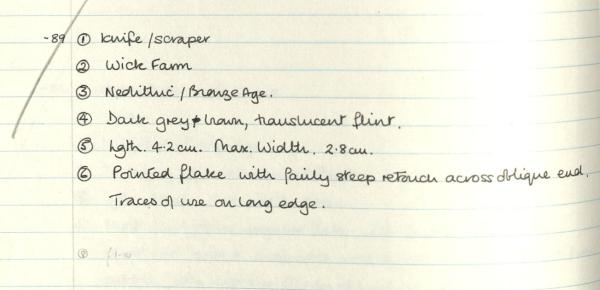 -89 ① Knife/scraper
② Wick Farm
③ Neolithic/Bronze Age.
④ Dark grey brown, translucent flint.
⑤ Lgth. 4.2cm. Max. Width. 2.8cm.
⑥ Pointed flake with fairly steep retouch across oblique end.
Traces of use on long edge.
⑧